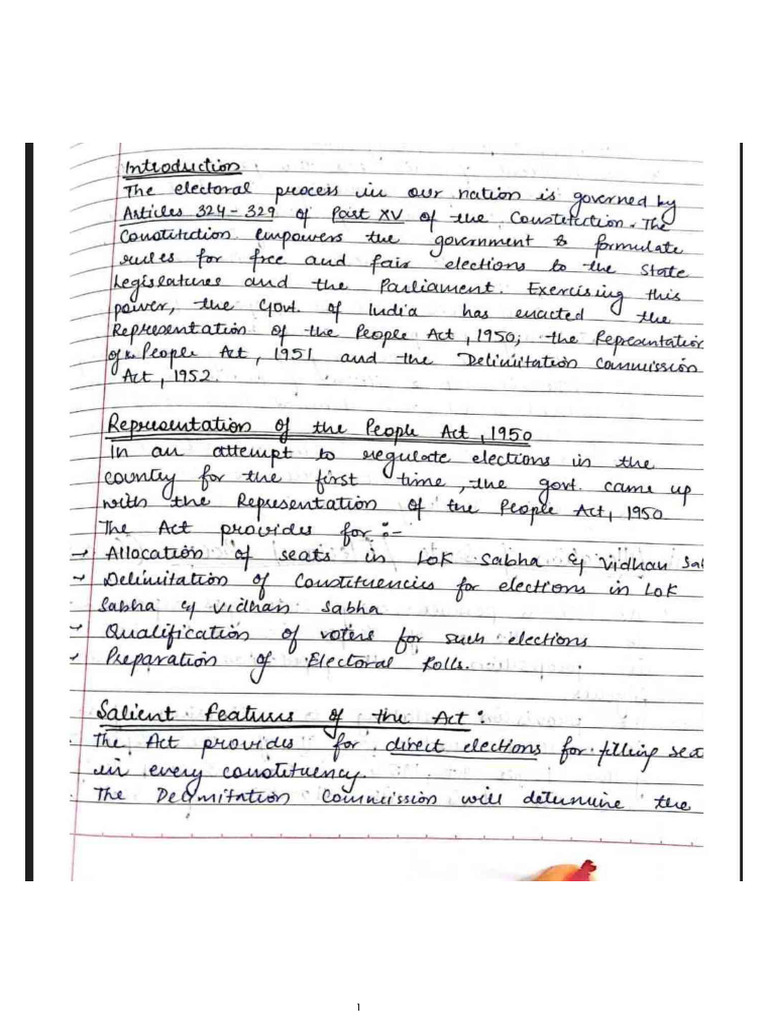 Introduction
The electoral process in our nation is governed by
Articles 324-329 of Part XV of the Constitution. The
Constitution empowers the government to formulate
rules for free and fair elections to the State
Legislatures and the Parliament. Exercising this
power, the Govt. of India has enacted the
Representation of the People Act, 1950; the Representation
of the People Act, 1951 and the Delimitation Commission
Act, 1952.
Representation of the People Act, 1950
In an attempt to regulate elections in the
country for the first time, the govt. came up
with the Representation of the People Act, 1950
The Act provides for :-
→ Allocation of seats in Lok Sabha & Vidhan Sa
→ Delimitation of Constituencies for elections in Lok
Sabha & Vidhan Sabha
→ Qualification of voters for such elections
→ Preparation of Electoral Rolls.
Salient Features of the Act :
· The Act provides for direct elections for filling sea
in every constituency.
· The Delimitation Commission will determine the
1